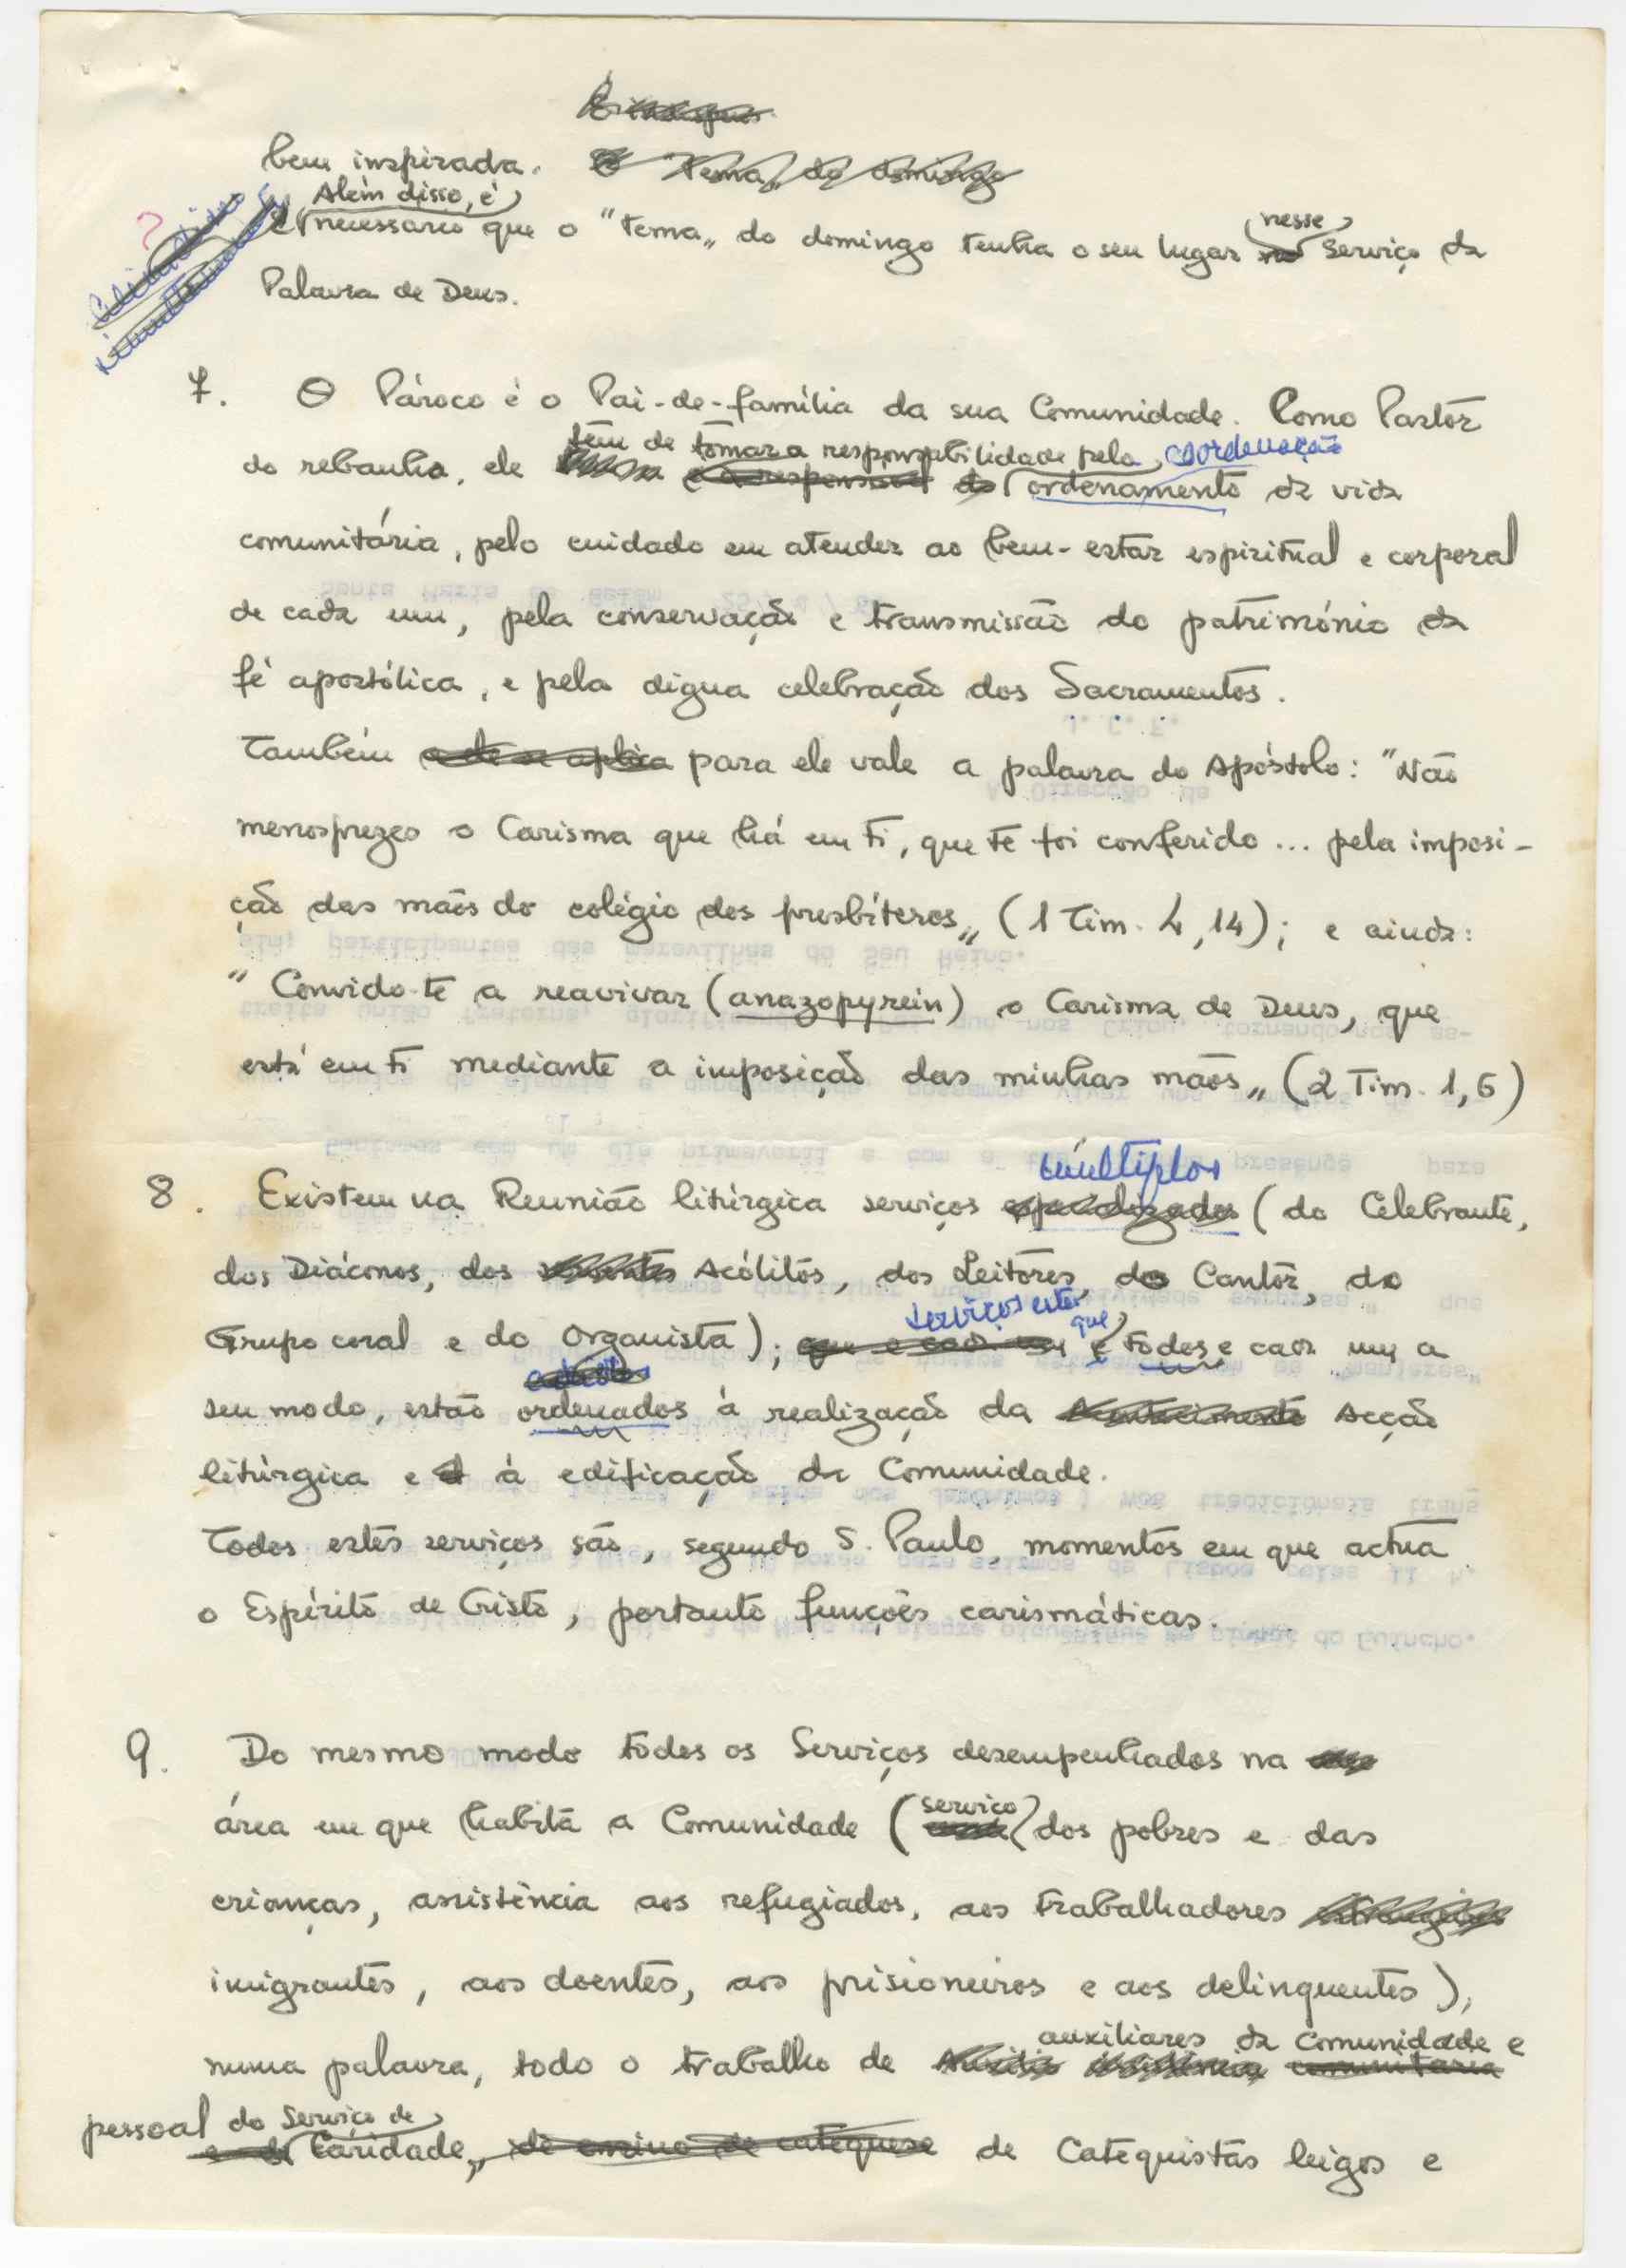 bem inspirada. O "Tema„ do domingo
Além disso, é
necessário que o "Tema„ do domingo tenha o seu lugar nesse Serviço da
Palavra de Deus.
?
7. O Pároco é o Pai-de-família da sua Comunidade. Como Pastor
têm de tomar a responsabilidade pela coordenação
do rebanho, ele e a responsável do ordenamento da vida
comunitária, pelo cuidado em atender ao bem-estar espiritual e corporal
de cada um, pela conservação e transmissão do património da
fé apostólica, e pela digna celebração dos Sacramentos.
Também a ele se aplica para ele vale a palavra do Apóstolo: "Não
menosprezes o Carisma que há em ti, que te foi conferido ... pela imposi-
ção das mãos do colégio dos presbíteros„ (1 Tim. 4,14); e ainda:
"Convido-te a reavivar (anazopyrein) o Carisma de Deus, que
está em ti mediante a imposição das minhas mãos„ (2 Tim. 1,6)
múltiplos
8. Existem na Reunião litúrgica serviços especializados (do Celebrante,
dos Diáconos, dos Acólitos, dos Leitores, do Cantor, do
serviços estes que
Grupo coral e do Organista); que e cada um e todos e cada um a
seu modo, estão ordenados à realização da Acção
litúrgica e à edificação da Comunidade.
Todos estes serviços são, segundo S. Paulo, momentos em que actua
o Espírito de Cristo, portanto funções carismáticas.
9. Do mesmo modo todos os Serviços desempenhados na
serviço
área em que habita a Comunidade ( dos pobres e das
crianças, assistência aos refugiados, aos trabalhadores
imigrantes, aos doentes, aos prisioneiros e aos delinquentes),
auxiliares da Comunidade e
numa palavra, todo o trabalho de comunitária
pessoal do Serviço de
Caridade„, de ensino de catequese de Catequistas leigos e